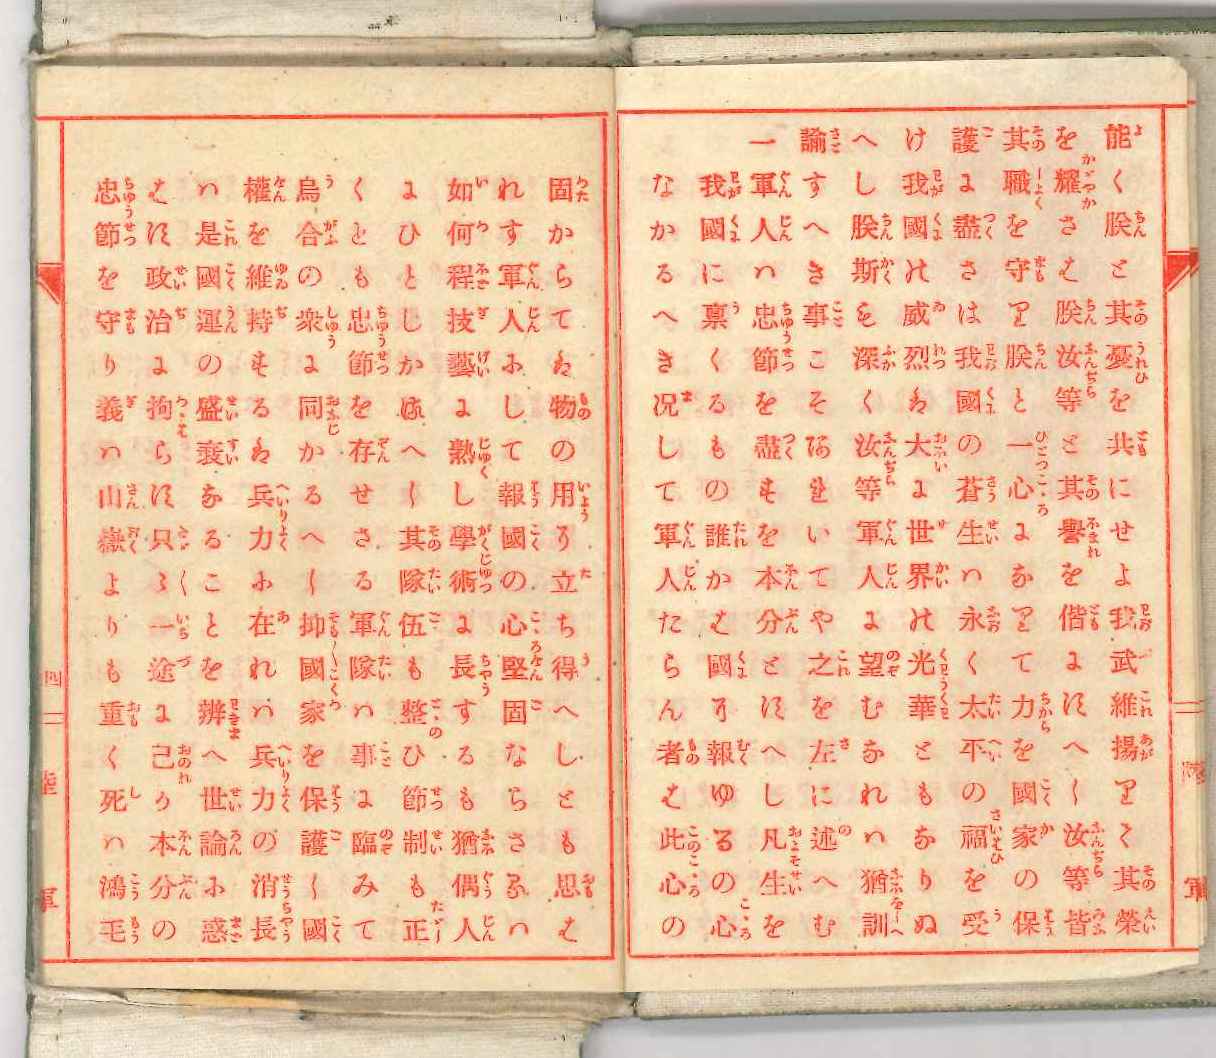 能く朕と其憂を共にせよ我武維揚りて其榮
を耀さは朕汝等と其譽を偕にすへし汝等皆
其職を守り朕と一心になりて力を國家の保
護に盡さは我國の蒼生は永く太平の福を受
け我國の威烈は大に世界の光華ともなりぬ
へし朕斯も深く汝等軍人に望むなれは猶訓
諭すへき事こそあれいてや之を左に述へむ
一軍人は忠節を盡すを本分とすへし凡生を
我國に禀くるもの誰かは國に報ゆるの心
なかるへき况して軍人たらん者は此心の
固からては物の用に立ち得へしとも思は
れす軍人にして報國の心堅固ならさるは
如何程技藝に熟し學術に長するも猶偶人
にひとしかるへし其隊伍も整ひ節制も正
くとも忠節を存せさる軍隊は事に臨みて
烏合の衆に同かるへし抑國家を保護し國
權を維持するは兵力に在れは兵力の消長
は是國運の盛衰なることを辨へ世論に惑
はす政治に拘らす只々一途に己か本分の
忠節を守り義は山嶽よりも重く死は鴻毛
四
陸軍